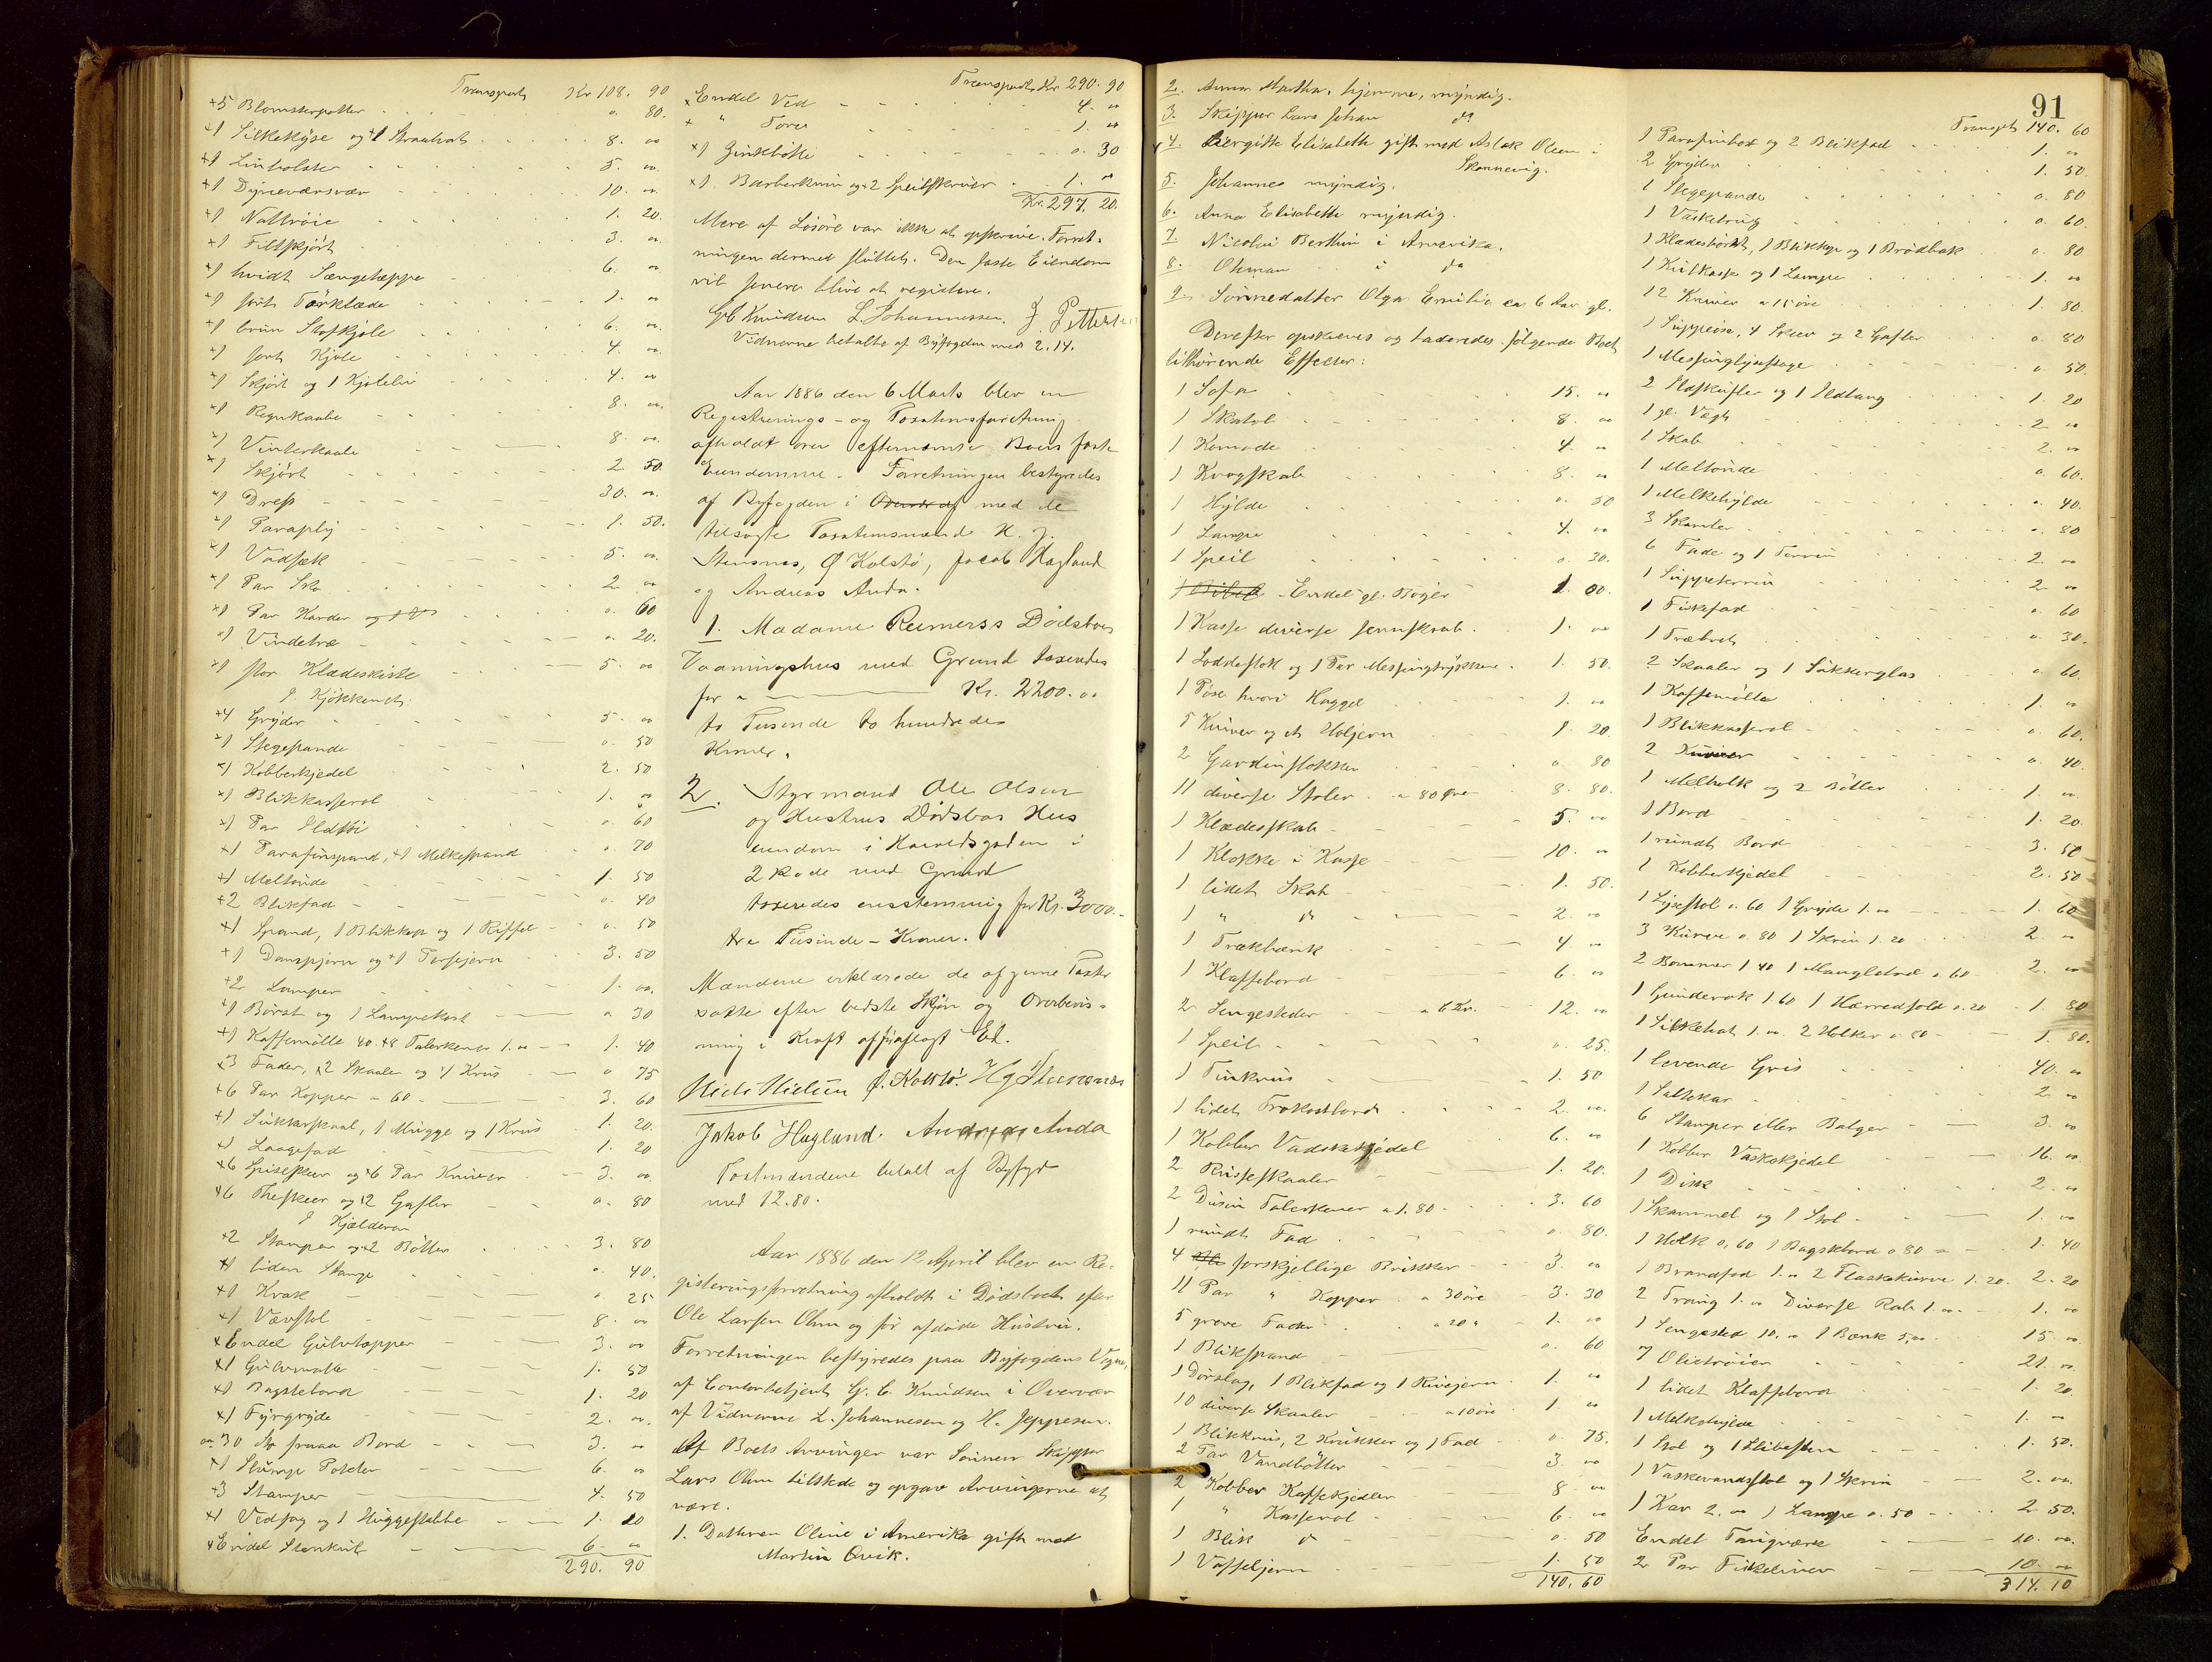 Transport Kr 108. 90
+5 Blomsterpotter o. 80.
+1 Silkekyse og +1 Straahat 8. "
+1 Linholster 5. "
+1 Dyneværsvær 10. "
+1 Nattrøie 1. 20.
+1 Filtskjørt 3. "
+1 hvidt Sængetæppe 6. "
+1 sort Tørklæde 1. "
+1 brun Stofkjole 6. "
+1 sort Kjole 4. "
+1 Skjørt og 1 Kjoleliv 4. "
+1 Regnkaabe 8. "
+1 Vinterkaabe 8. "
+1 Skjørt 2. 50
+1 Dress 30. "
+1 Paraply 1. 50.
+1 Vadsæk 5. "
+1 Par Sko 2. "
+1 Par Karder o. 60
+1 Vindetræ o. 20.
+1 stor Klædeskiste 5. "
I Kjøkkenet:
+4 Gryder 5. "
+1 Stegepande o. 50
+1 Kobberkjedel 2. 50
+1 Blikkasserol 1. "
+1 Par Ildtøi o. 60
+1 Parafinspand, +1 Melkespand o. 70
+1 Meltønde 1. 50
+2 Blikfad o. 40
+1 Spand, 1 Blikkop og 1 Riffel o. 50
+1 Dampjern og +1 Persejern 3. 50
+2 Lamper 1. "
+1 Børst og 1 Lampekost o. 30
+1 Kaffemølle 40. +8 Talerkener 1. " 1. 40
+3 Fader, +2 Skaaler og +1 Krus o. 75
+6 Par Kopper - 60 - 3. 60
+1 Sukkerskaal, 1 Mugge og 1 Krus 1. 20.
+1 Laagefad 1. 20
+6 Spiseskeer og +6 Par Kniver 3. "
+6 Theskeer og +2 Gafler o. 80
I Kjælderen
+2 Stamper og +2 Bøtter 3. 80
+1 liden Stamp o. 40.
+1 Krak o. 25
+1 Vævstol 8. "
+Endel Gulvtæpper 3. "
+1 Gulvmatte 1. 50
+1 Bagstebord 1. 20
+1 Fyrgryde 2. "
30 smaa Bord 3. "
+1 Slump Poteter 6. "
+3 Stamper 4. 50
+1 Vedsag og 1 Huggestabbe 1. 20
+Endel Stenkul 6. "
290. 90
Transport Kr. 290. 90
+Endel Ved 4. "
+ " Torv 1. "
+1 Zinkbøtte o. 30
+1 Barberkniv og +2 Speilskruer 1. "
Kr. 297. 20.
Mere af Løsøre var ikke at opskrive. Forret-
ningen dermed sluttet. Den faste Eiendom
vil senere blive at registere.
Gb Knudsen L. Johannessen. J. Pettersen
Vidnerne betalte af Byfogden med 2.14.
Aar 1886 den 6 Marts blev en
Registrerings- og Taxtionsforretning
afholdt over efternævnte Boers faste
Eiendomme. Forretningen bestyredes
af Byfogden i med de
tilsagte Taxtionsmænd H. J.
Stensnes, Ø Kolstø, Jacob Hagland
og Andreas Anda.
1. Madame Reimerss Dødsboes
Vaaningshus med Grund taxeredes
for a Kr. 2200. oo
to Tusinde to hundrede
Kroner.
2. Styrmand Ole Olsen
og Hustrus Dødsboes Hus
eiendom i Haraldsgaden i
2 Rode med Grund
taxeredes enstemmig for Kr. 3000.-
tre Tusinde - Kroner.
Mændene erklærede de afgivne Taxter
satte efter bedste Skjøn og Overbevis-
ning i Kraft af aflagt Ed.
Niels Nielsen Ø. Kolstø. H J Stensnes
Jakob Hagland. Andreas Anda
Taxtmændene betalt af Byfogd
med 12.80.
Aar 1886 den 12 April blev en Re-
gisteringsforretning afholdt i Dødsboet efter
Ole Larsen Ohm og før afdøde Hustru.
Forretningen bestyredes paa Byfogdens Vegne
af Contorbetjent G. C. Knudsen i Overvær
af Vidnerne L. Johannesen og H. Jeppesen.
Af Boets Arvinger var Sønnen Skipper
Lars Ohm tilstede og opgav Arvingerne at
være.
1. Datteren Oline i Amerika gift med
Martin Qvik.
91
2. Anna Martha, hjemme, myndig.
3. Skipper Lars Johan do
4. Bergitte Elisabeth gift med Aslak Olsen i
Skonnevig.
5. Johannes myndig.
6. Anna Elisabeth myndig.
7. Nicolai Berthin i Amerika.
8. Ohman i do
9. Sønnedatter Olga Emilie ca 6 Aar gl.
Derefter opskreves og taxeredes følgende Boet
tilhørende Effecter:
1 Sofa 15. "
1 Skatol 8. "
1 Komode 4. "
1 Krogskab 8. "
1 Hylde o. 50
1 Lampe 4. "
1 Speil o. 30.
1 Bibel Endel gl. Bøger 1. 00.
1 Kasse diverse Jernskrab 1. "
1 Loddestok og 1 Par Messingtrykkere 1. 50.
1 Pose hvori Haggel 1. "
5 Kniver og et Høljern 1. 20.
2 Gardinstokker o. 80
11 diverse Stoler a 80 Øre 8. 80.
1 Klædesskab 5. "
1 Klokke i Kasse 10. "
1 lidet Skab 1. 50.
1 " do 2. "
1 Trækbænk 4. "
1 Klaffebord 6. "
2 Sengesteder a 6 Kr. 12. "
1 Speil o. 25.
1 Tinkrus 1. 50
1 lidet Frokostbord 2. "
1 Kobber Vadskekjedel 6. "
2 Risseskaaler 1. 20.
2 Dusin Talerkener a 1.80 3. 60
1 rundt Fad o. 80.
4 forskjellige Brikker 3. "
11 Par " Kopper a 30 øre 3. 30
5 grove Fader a 20 " 1. "
1 Blikspand o. 60
1 Dørslag, 1 Blikfad og 1 Rivejern 1. "
10 diverse Skaaler a 10 øre 1. "
1 Blikkrus, 2 Krukker og 1 Fad o. 75.
2 Par Vandbøtter 3. "
2 Kobber Kaffekjedler 8. "
1 " Kasserol 6. "
1 Blik do o. 50
1 Vaffeljern 1. 50
140. 60
Transpt 140. 60
1 Parafinbox og 2 Blikfad 1. "
2 Gryder 1. 50.
1 Stegepande o. 80
1 Vasketrug o. 60.
1 Klædesbørst, 1 Blikkop og 1 Brødbak o. 80
1 Kulkasse og 1 Lampe 1. "
12 Kniver a 15 øre 1. 80.
1 Suppeøse, 4 Skeer og 2 Gafler o. 80
1 Messinglysestage o. 50.
2 Ildskufler og 1 Ildtang 1. 20
1 gl. Vægt 2. "
1 Skab 2. "
1 Meltønde o. 60.
1 Melkehylde o. 40.
3 Skamler o. 80
6 Fade og 1 Terrin 2. "
1 Suppeterrin 2. "
1 Fiskefad o. 60
1 Træbret o. 30.
2 Skaaler og 1 Sukkerglas o. 60.
1 Kaffemølle 1. "
1 Blikkasserol o. 60.
2 Kurver o. 40.
1 Melholk og 2 Bøtter 1. "
1 Bord 1. 20.
1 rundt Bord 3. 50
1 Kobberkjedel 2. 50
1 Lysestol o. 60 1 Gryde 1. " 1. 60
3 Kurve o. 80 1 Skrin 1. 20 2. "
2 Bommer 1 40 1 Mangletræ o. 60 2. "
1 Gunderok 1. 60 1 Harredsold o. 20 1. 80
1 Silkehat 1. " 2 Holker o. 80 1. 80.
1 levende Gris 40. "
1 Saltekar 2. "
6 Stamper eller Balger 3. "
1 Kobber Vaskekjedel 16. "
1 Disk 2. "
1 Skammel og 1 Stol 1. "
1 Holk o, 60 1 Bagstebord o 80 1. 40
1 Brandfad 1. " 2 Flaskekurve 1. 20. 2. 20
2 Traug 1. " Diverse Rab 1. " 1. "
1 Sengested 10. " 1 Bænk 5, " 15 "
7 Olietrøier 21. "
1 lidet Klaffebord 1. 20.
1 Melkehylde 1. "
1 Stol og 1 Slibesten 1. 50.
1 Vaskevandsstol og 1 Skrin 2. "
1 Kar 2. " 1 Lampe o. 50 2. 50.
Endel Taugværk 20. "
2 Par Fiskeliner 10. "
314. 10